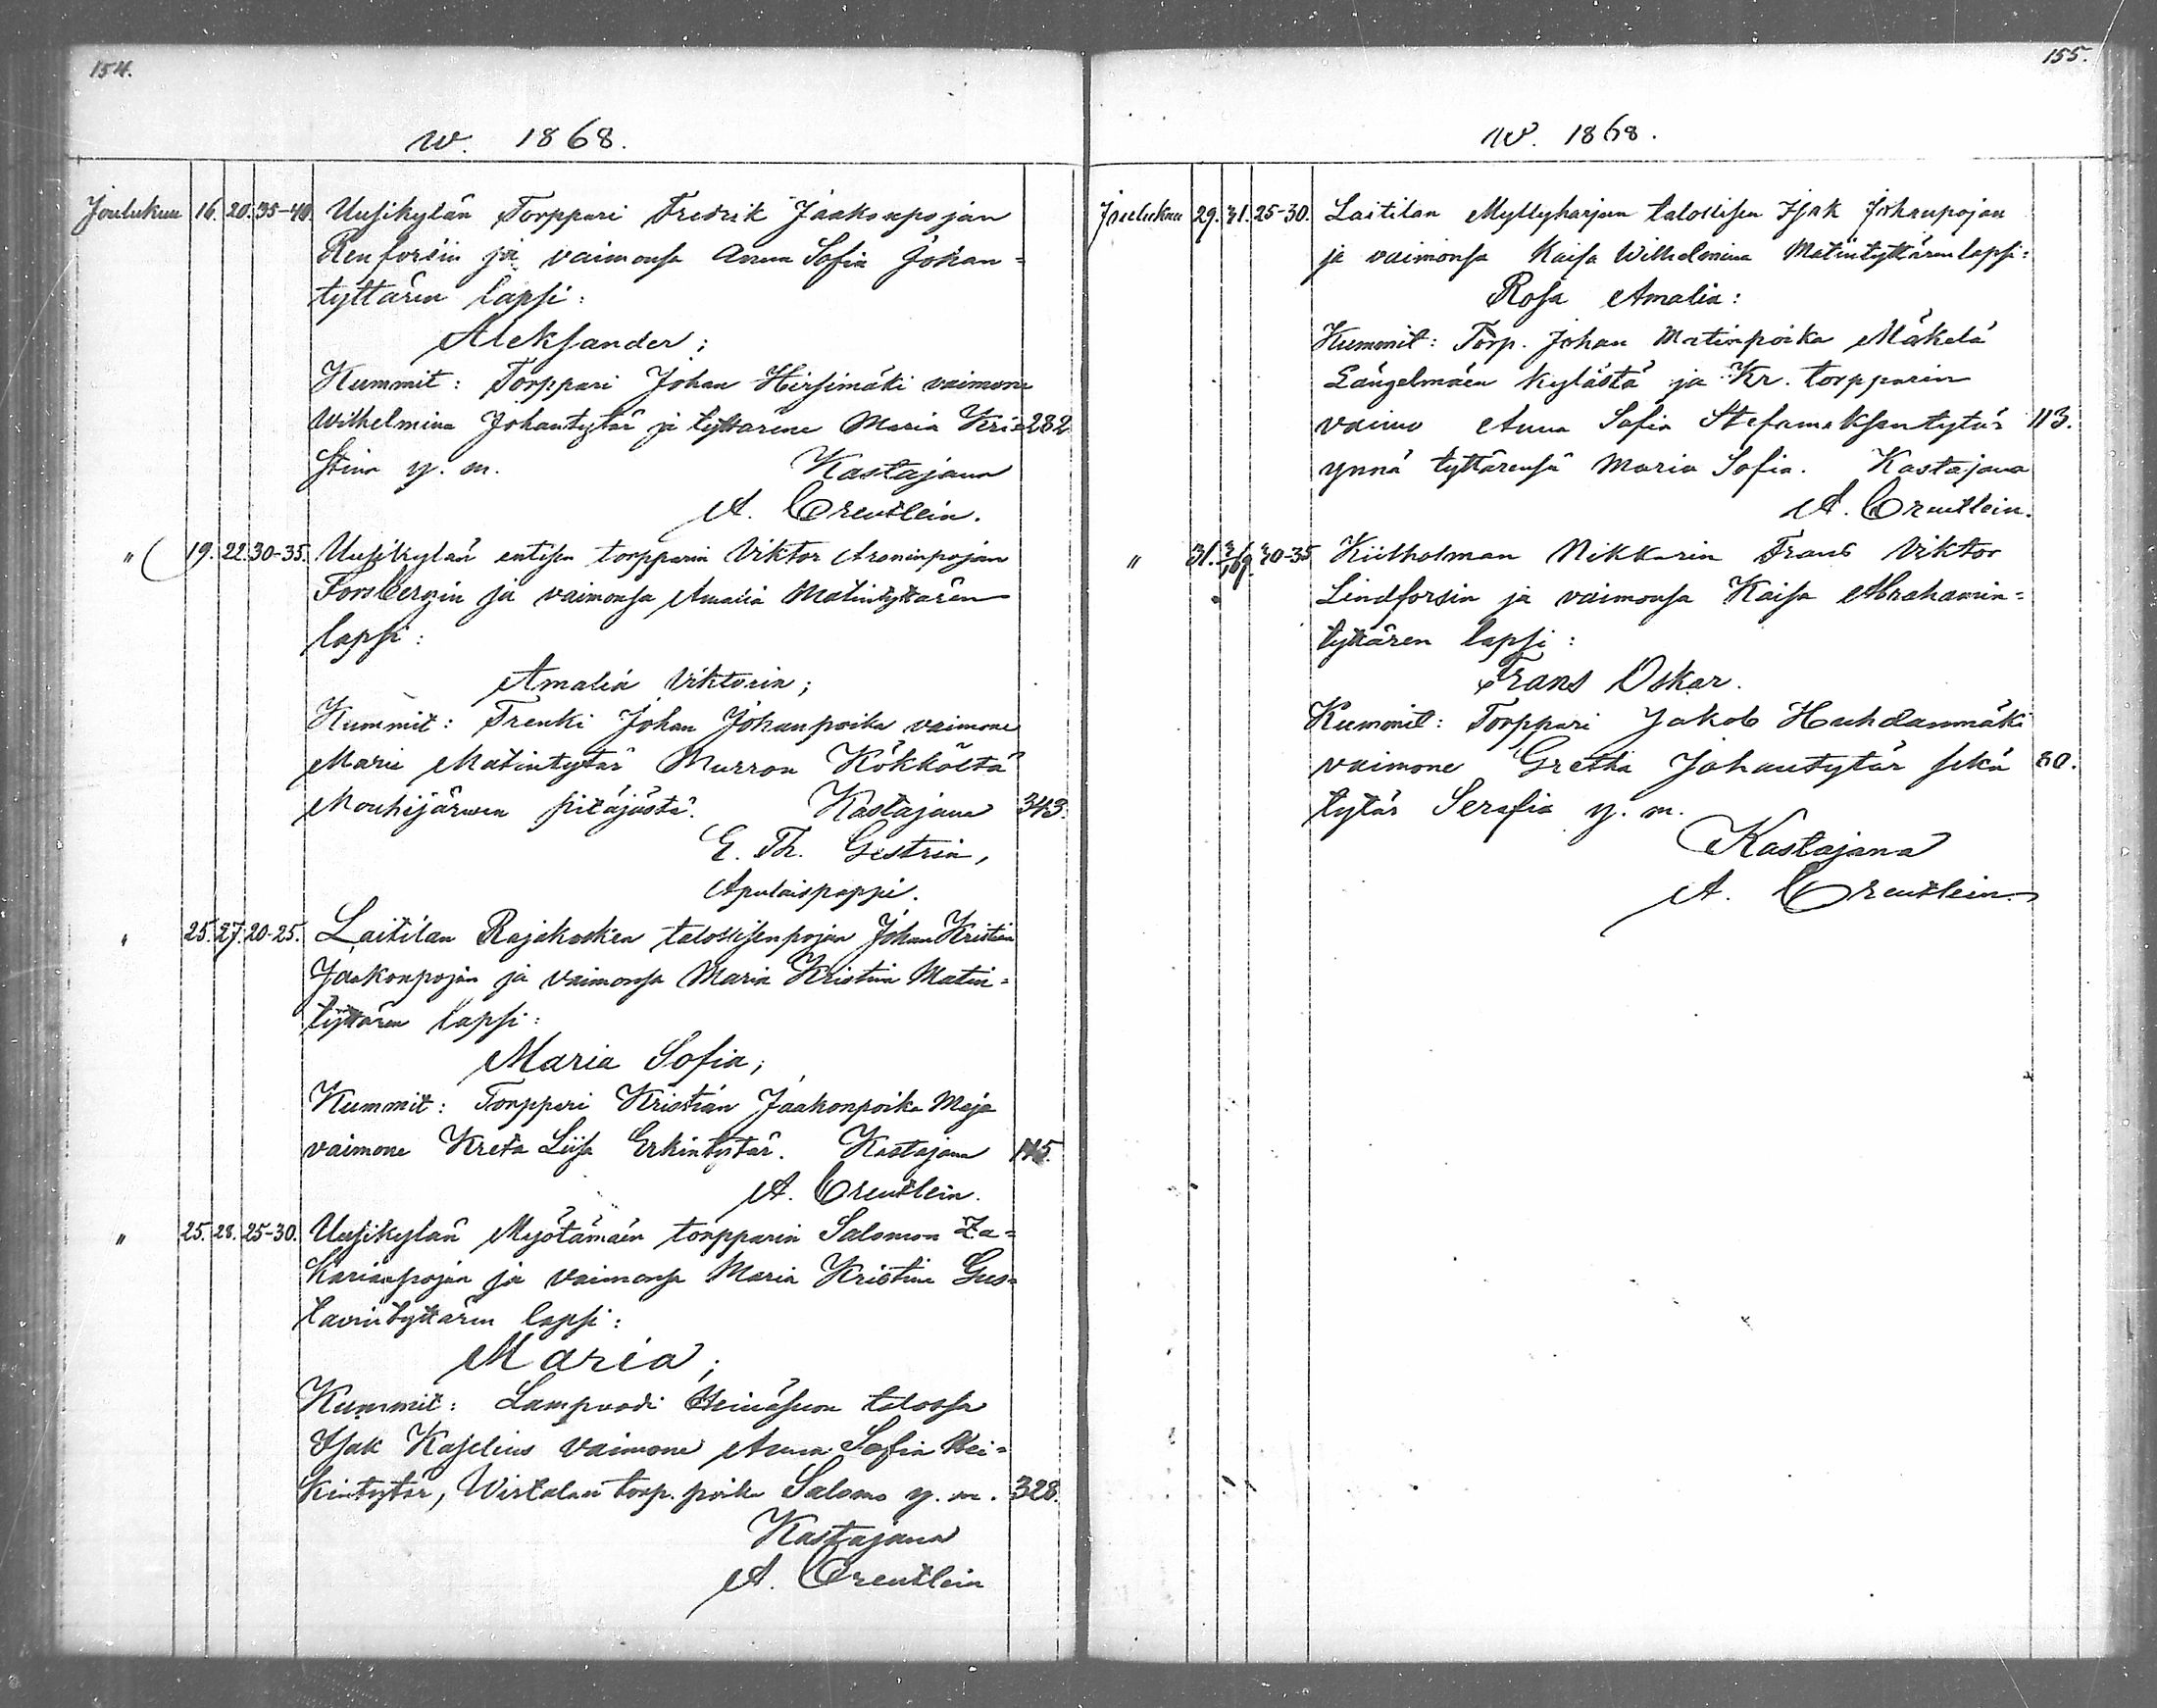 154.
w. 1868.
Joulukuu 16. 20. 35-40. Uusikylän Torppari Fredrik Jaakonpojan
Renforsin ja vaimonsa Anna Sofia Johan-
tyttären lapsi:
Aleksander;
Kummit: Torppari Johan Hirsimäki vaimone
Wilhelmina Johantytär ja tyttärine Maria Kri- 282
stina y. m. Kastajana
A. Creutlein.
" 19. 22. 30-35. Uusikylän entisen torpparin Viktor Aroninpojan
Forsbergin ja vaimonsa Amalia Matintyttären
lapsi:
Amalia Viktoria;
Kummit: Trenki Johan Johanpoika vaimone
Maria Matintytär Murron Kökköltä
Mouhijärwen pitäjästä. Kastajana 343.
E. Th. Gestrin,
Apulaispappi.
" 25. 27. 20-25. Laitilan Rajakosken talollisenpojan Johan Kristian
Jaakonpojan ja vaimonsa Maria Kristina Matin-
tyttären lapsi:
Maria Sofia;
Kummit: Torppari Kristian Jaakonpoika Maja
vaimone Kreta Liisa Erkintytär. Kastajana 145.
A. Creutlein.
" 25. 28. 25-30. Uusikylän Myötämäen torpparin Salomon Za-
kariaanpojan ja vaimonsa Maria Kristina Gus-
tavintyttären lapsi:
Maria;
Kummit: Lampuodi Heinäsuon talossa
Isak Kaselius vaimone Anna Sofia Hei-
kintytär, Wirtalan torp. poika Salomo y. m. 328.
Kastajana
A. Creutlein
155.
w. 1868.
Joulukuu 29. 31. 25-30. Laitilan Myllyharjun talollisen Isak Johanpojan
ja vaimonsa Kaisa Wilhelmina Matintyttären lapsi:
Rosa Amalia:
Kummit: Torp. Johan Matinpoika Mäkelä
Längelmäen kylästä ja Kr. torpparin
vaimo Anna Sofia Stefanuksentytär 113.
ynnä tyttärensä Maria Sofia. Kastajana
A. Creutlein.
" 31. 3/1 69. 30-35 Kiilholman Nikkarin Frans Viktor
Lindforsin ja vaimonsa Kaisa Abrahamin-
tyttären lapsi:
Frans Oskar.
Kummit: Torppari Jakob Huhdanmäki
vaimone Gretha Johantytär sekä 80.
tytär Serafia y. m.
Kastajana
A. Creutlein.